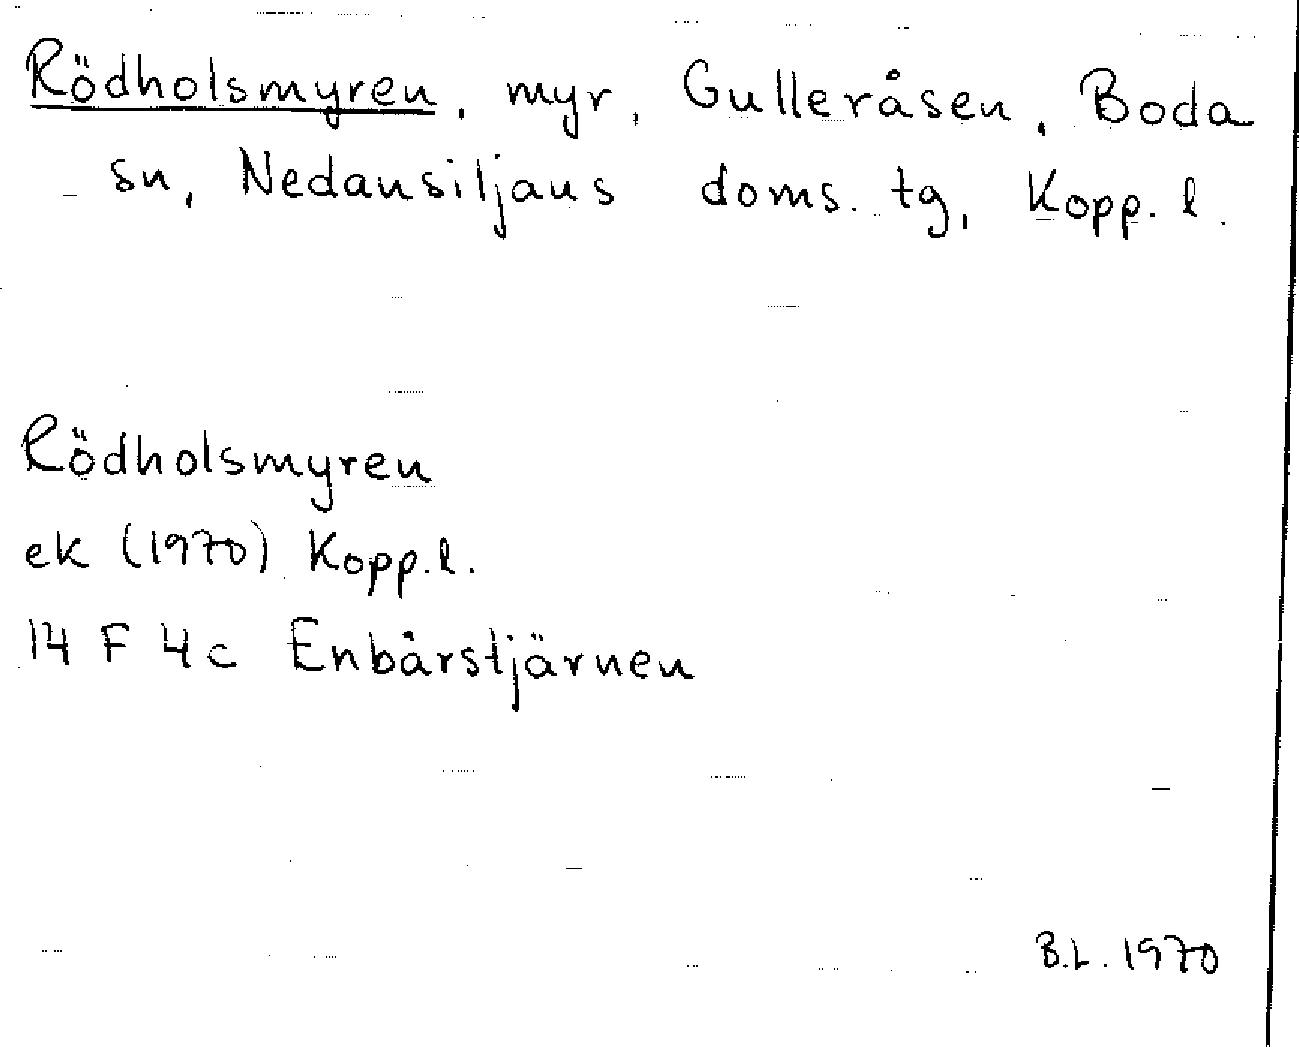 Rödholsmyren, myr, Gulleråsen, Boda
sn, Nedansiljans doms. tg, Kopp. l.
Rödholsmyren
ek (1970) Kopp.l.
14 F 4c Enbårstjärnen
B.L. 1970